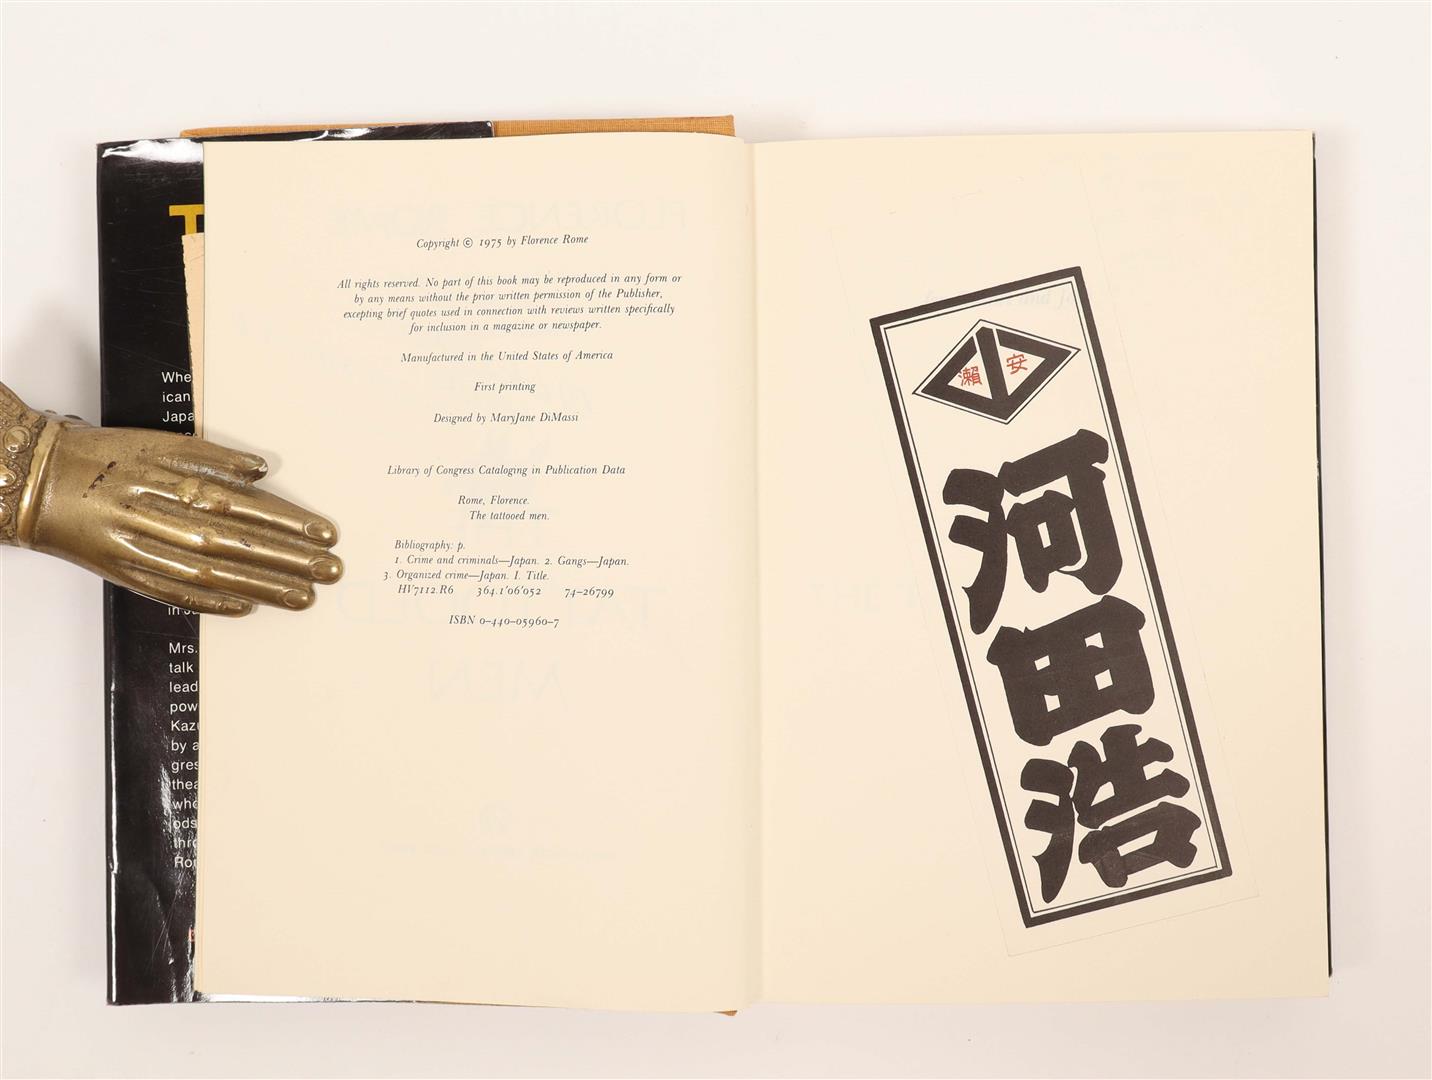 T
Whe
ican
Japa
in Ja
Mrs.
talk
lead
pow
Kazu
by a
gres
thea
who
ods
thro
Ro
Copyright © 1975 by Florence Rome
All rights reserved. No part of this book may be reproduced in any form or
by any means without the prior written permission of the Publisher,
excepting brief quotes used in connection with reviews written specifically
for inclusion in a magazine or newspaper.
Manufactured in the United States of America
First printing
Designed by MaryJane DiMassi
Library of Congress Cataloging in Publication Data
Rome, Florence.
The tattooed men.
Bibliography: p.
1. Crime and criminals—Japan. 2. Gangs—Japan.
3. Organized crime—Japan. I. Title.
HV7112.R6 364.1'06'052 74–26799
ISBN 0–440–05960–7
安
瀬
河田浩